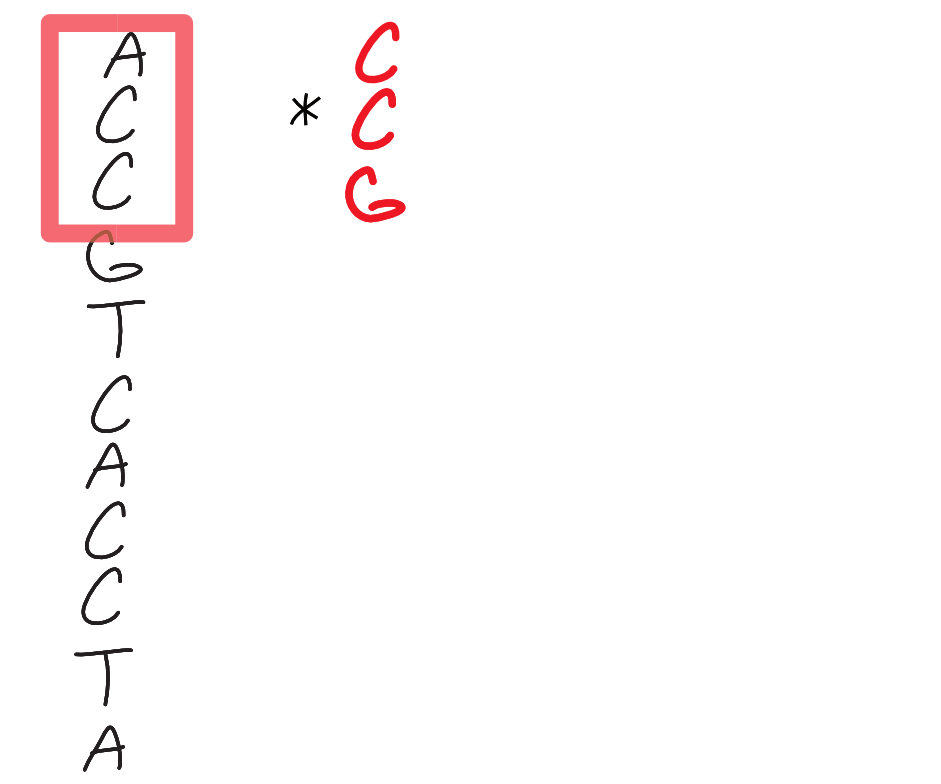 A
C
C
G
T
C
A
C
C
T
A
* C
C
G